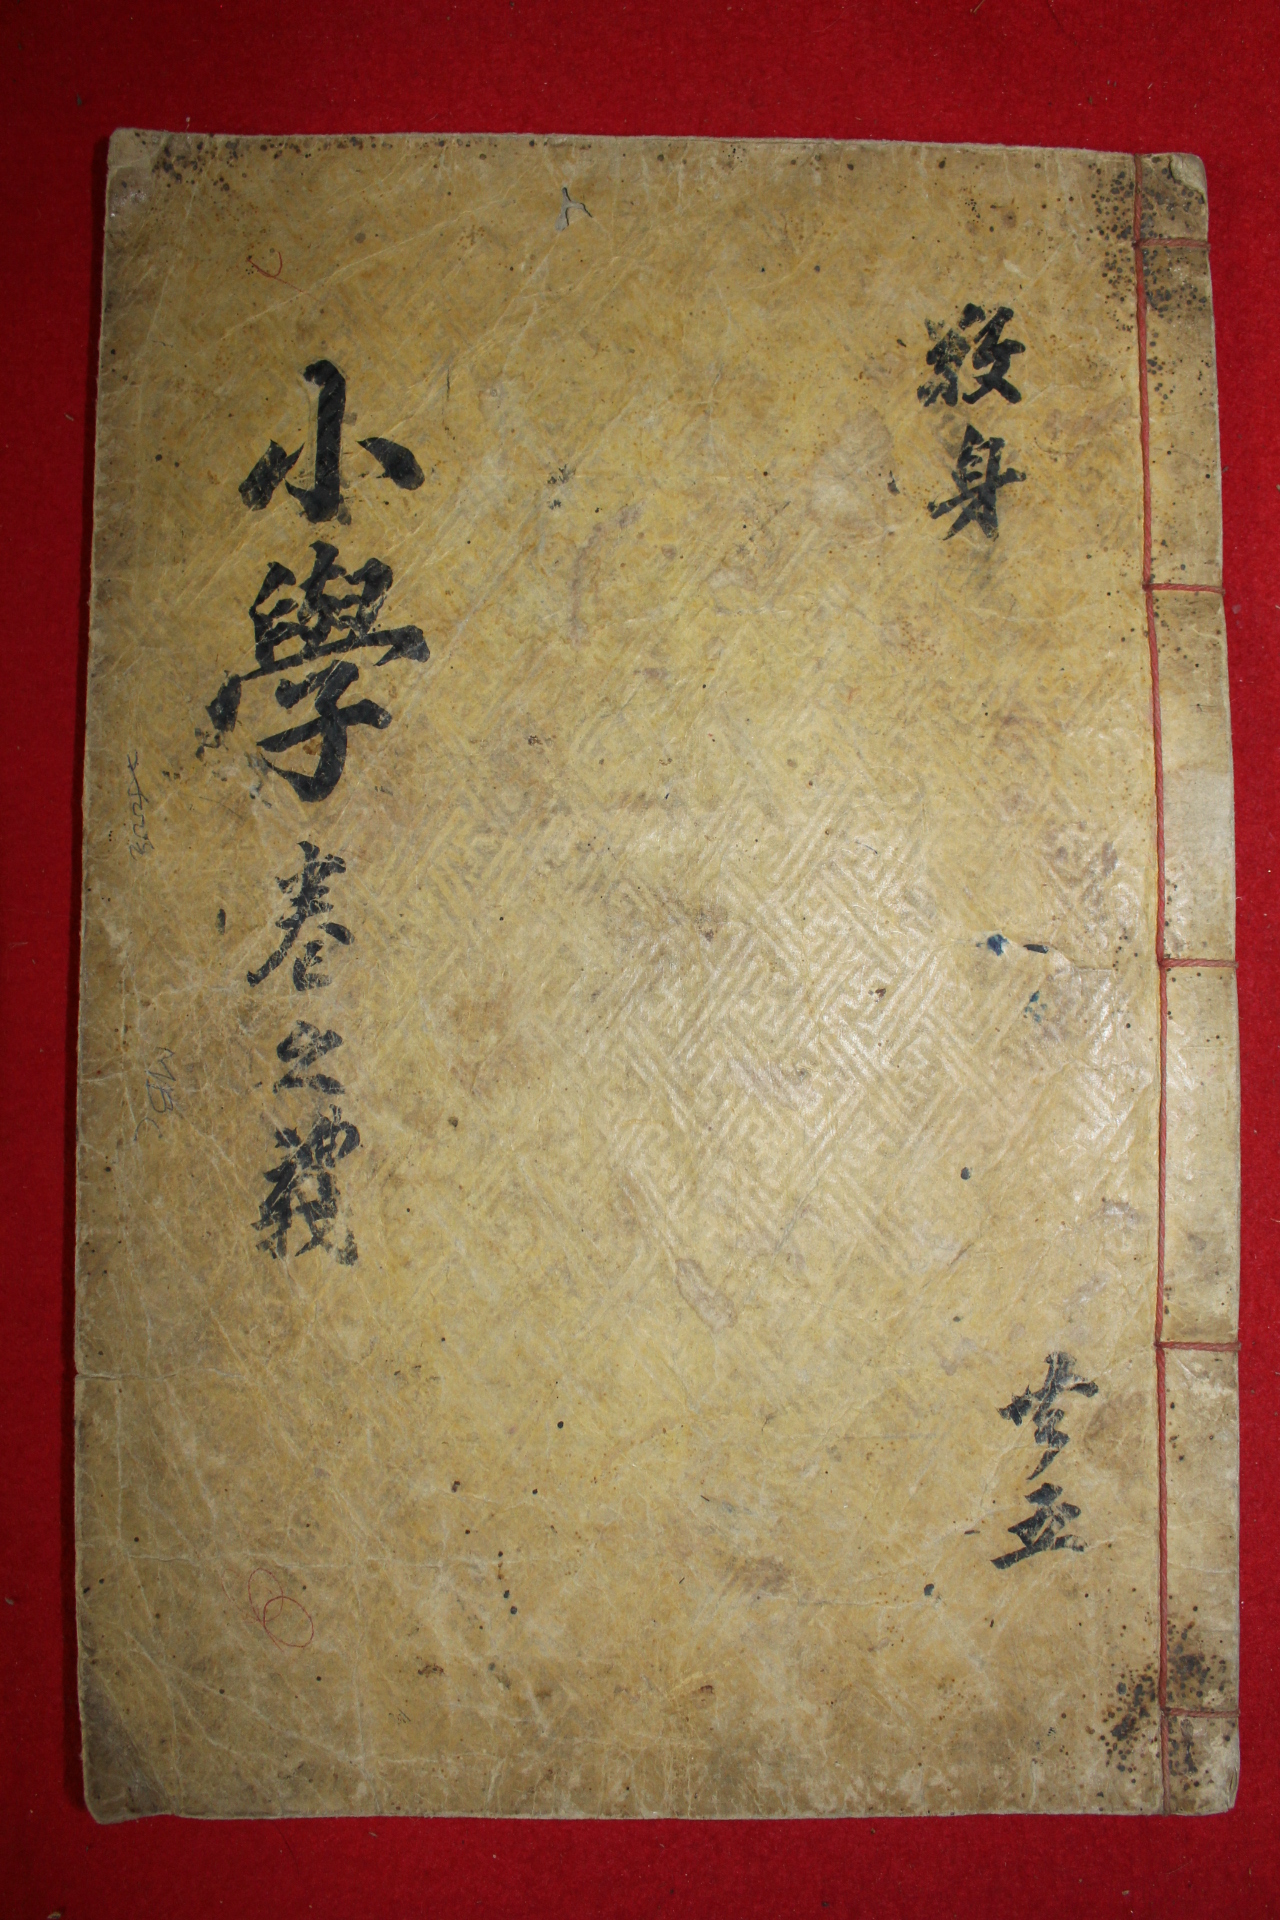 敬身
共五
小學 卷之義